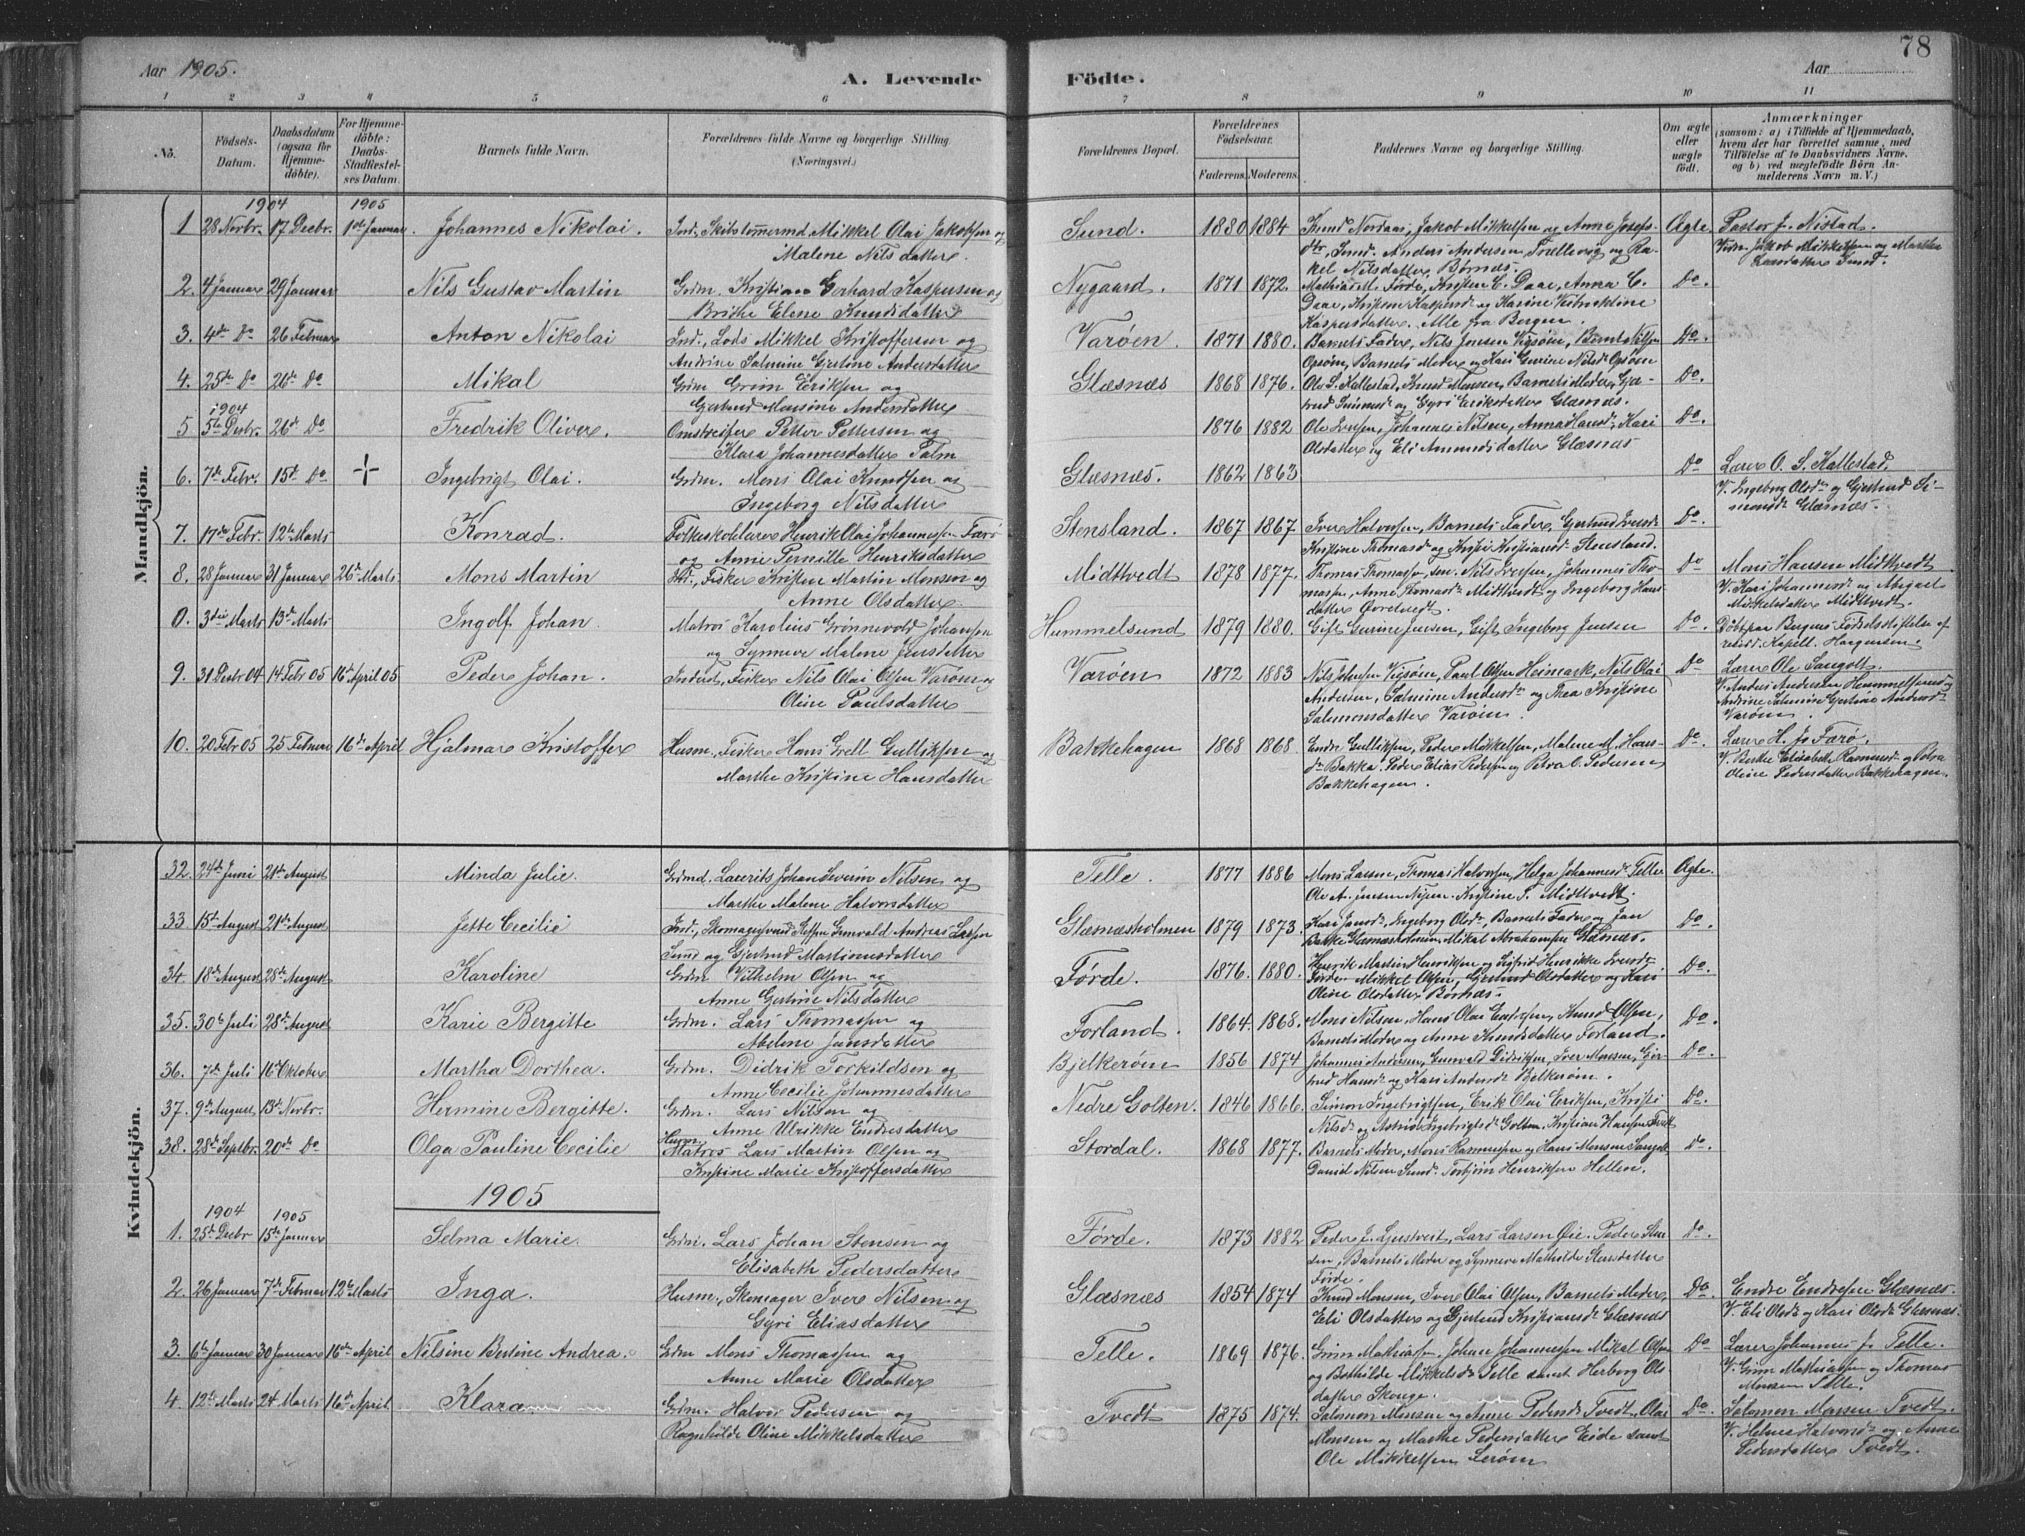 78
Aar 1905.
A. Levende Födte.
Aar
1 2 3 4 5 6 7 8 9 10 11
No.
Födsels-Datum.
Daabsdatum (ogsaa for Hjemmedöbte).
For Hjemmedöbte: Daabs-Stadfæstelses Datum.
Barnets fulde Navn.
Forældrenes fulde Navne og borgerlige Stilling (Næringsvei.)
Forældrenes Bopæl.
Forældrenes Födselsaar.
Faderens. Moderens.
Faddernes Navne og borgerlige Stilling.
Om ægte eller uægte födt.
Anmærkninger
(saasom: a) i Tilfælde af Hjemmedaab, hvem der har forrettet samme, med Tilföielse af to Daabsvidners Navne, og b) ved uægtefödte Börn Anmelderens Navn m. V.)
Mandkjön.
1904 1905
1 28 Novbr. 17 Decbr. 1ste Januar Johannes Nikolai. Ind. Skibstømmermd Mikkel Olai Jakobsen og Sund. 1880 1884 Knud Nordaas, Jakob Mikkelsen og Anna Josefs- Ægte Pastor J. Nistad.
Malene Nilsdatter. dtr, Sund. Anders Andersen, Trellevig og Ra- Vidn. Jakob Mikkelsen og Martha
kel Nilsdatter, Børnes. Larsdatter Sund.
2. 4 Januar 29 Januar Nils Gustav Martin Grdm. Kristian Gerhard Kaspersen og Nygaard. 1871 1872. Førde, Kristen C. Daae, Anna C. Do.
Brithe Elene Knudsdatter Daae, Kristine Kaspersd. og Karine
Kaspersdatter. Alle fra Bergen.
3. 4de Do 26 Februar Anton Nikolai Ind., Lods Mikkel Kristoffersen og Varøen. 1871 1880. Barnets Fader, Nils Jensen Vigsøen, Bernt Nilsen Do.
Andrine Salmine Gjertine Andersdatter Barnets Moder og Kari Gurine Nilsd.
4. 25de Do 26de Do Mikal Grdm Grim Eriksen og Glæsnæs 1868 1876. Ole S. Hallestad, Knud Monsen, Barnets Moder, Gje- Do.
Gjertrud Monsine Andersdatter trud og Gyri Eriksdatter Glæsnæs.
1904
5 5te Decbr. 26de Do Fredrik Oliver. Omstreifer Petter Pettersen og 1876 1882 Ole Iversen, Johannes Nilsen, Anna Hansd., Kari Do.
Klara Johannesdatter Palm Olsdatter og Eli Amundsdatter Glæsnæs
6. 7de Febr. 15de Do + Ingebrigt Olai. Grdm. Mons Olai Knudsen og Glæsnæs. 1862 1863 Do Lærer O. S. Hallestad.
Ingeborg Nilsdatter V. Ingeborg Olsd. og Gjertrud Si-
monsd. Glæsnæs.
7. 17de Febr. 12te Marts Konrad. Folkeskolelærer Henrik Olai Johannessen Færø Stensland. 1867 1867. Iver Halvorsen, Barnets Fader, Gjertrud Iversd. Do.
og Anne Pernille Henriksdatter Kristine Thomasd. og Kristi Kristiansd. Stensland.
8. 28 Januar 31 Januar 26de Marts Mons Martin Ind., Fisker Kristen Martin Monsen og Midttvedt 1878 1877. Thomas Thomassen sen. Nils Iversen, Johannes Tho- Do Mons Hansen Midttvedt
Anne Olsdatter. massen, Anne Thomasd. Midttvedt og Ingeborg Hans- V. Kari Johannesd. og Abigael
datter Mikkelsdatter Midttvedt.
0. 3die Marts 13de Marts Ingolf Johan. Matros Karolius Grønnevold Johansen Hummelsund 1879 1880. Gift Gurine Jensen, Gift Ingeborg Jensen Do. Døbt paa Bergens Fødselsstiftelse af
og Synneve Malene Jensdatter resid. Kapell. Haagensen.
9. 31 Decbr 04 14 Febr 05 16de April 05 Peder Johan. Inderst, Fisker Nils Olai Olsen Varøen og Varøen 1872 1883 Nils Jensen Vigsøen, Paul Olsen Heimark, Nils Olai Do Lærer Ole Sangolt.
Oline Paulsdatter Andersen, Salmine Andersd. og Thea Kristine V. Anders Andersen Hummelsund og
Salomonsdatter Varøen. Andrine Salmine Gjertine Andersd. Varøen.
10. 20 Febr 05 25 Februar 16de April Hjalmar Kristoffer Husm. Fisker Hans Grell Gulliksen og Bakkehagen 1868 1868. Endre Gulliksen, Peder Mikkelsen, Malene M. Hans- Do. Lærer H. J. Færø.
Marthe Kristine Hansdatter d. Bakka. Peder Elias Pedersen og Petra O. Pedersen V. Berthe Elisabeth Rasmusd. og Petra
Bakkehagen. Oline Pedersdatter Bakkehagen.
Kvindekjön.
32. 24de Juni 21de August Minda Julie. Grdmd. Laurits Johan Severin Nilsen og Telle. 1877 1886 Mons Larsen, Thomas Halvorsen, Helga Johannesd. Telle Ægte.
Marthe Malene Halvorsdatter Ole A. Jensen Kristine T. Midttvedt.
33 15de August 21de August Jette Cecilie Ind., Skomagersvend Gunvald Andreas Larsen Glæsnæsholmen 1879 1873. Kari Jansd., Ingeborg Olsd., Barnets Fader og Jan Do.
Sund og Gjertrud Martinusdatter Bakke Glæsnæsholmen, Mikal Abrahamsen Glæsnæs.
34. 18de August 28de August Karoline Grdm. Vilhelm Olsen og Førde. 1876. 1880. Henrik Martin Henriksen og Sigfrid Henrikke Iversd. Do.
Anne Gjertine Nilsdatter Førde, Mikkel Olsen, Gjertrud Olsdatter og Kari
Oline Olsdatter Børnæs.
35. 30te Juli 28de August Karie Bergitte Grdm. Lars Thomassen og Forland. 1864. 1868. Mons Nilsen, Hans Olai Knud Olsen, Do.
Abelene Jansdatter Barnets Moder og Anne Knudsdatter Forland.
36. 7de Juli 16 Oktober Martha Dorthea. Grdm. Didrik Torkildsen og Bjelkerøen 1856 1874 Johannes Andersen, Gunvald Didriksen, Iver Monsen, Gjer- Do.
Anne Cecilie Johannesdatter trud Hansd. og Kari Andersd. Bjelkerøen.
37. 9de August 13de Novbr. Hermine Bergitte. Grdm. Lars Nilsen og Nedre Golten. 1846 1866. Simon Ingebrigtsen, Erik Olai Eriksen, Kristi Do.
Anne Ulrikke Endresdatter Nilsd. og Astrid Ingebrigtsd. Golten, Kristian Hansen
38. 28de Septbr. 20de Do Olga Pauline Cecilie Husm. Matros Lars Martin Olsen og Stordal. 1868 1877. Barnets Moder, Mons Rasmussen og Hans Monsen Sangolt Do.
Kristine Marie Kristoffersdatter Daniel Nilsen Sund. Torbjørn Henriksen Hellen.
1905
1904 1905
1. 25de Decbr 15de Januar Selma Marie. Grdm. Lars Johan Stensen og Førde. 1873 1882 Peder J. Lars Larsen Øie. Peder Sten- Do
Elisabeth Pedersdatter sen, Barnets Moder og Synneve Mathilde Stensdatter
Førde.
2. 26 Januar 7de Februar 12te Marts Inga. Husm., Skomager Iver Nilsen og Glæsnæs 1854 1874 Knud Monsen, Iver Olai Olsen, Barnets Moder, Do. Endre Endresen Glæsnæs.
Gyri Eliasdatter Eli Olsdatter og Gjertrud Kristiansd. Glæsnæs V. Eli Olsd. og Kari Olsd. Glæsnæs.
3. 6te Januar 30 Januar 16de April Nilsine Bertine Andrea. Grdm Mons Thomassen og Telle. 1869 1876. Grim Mathiassen. Johan Johannessen Mikal Olsen Do Lærer Johannes J. Telle.
Anne Marie Olsdatter og Bothilde Mikkelsd. Telle samt Herborg Ols- V. Grim Mathiassen og Thomas
datter Skoge. Monsen Telle.
4. 12te Marts 24 Marts 16de April Klara Grdm. Halvor Pedersen og Tvedt 1875 1874. Salomon Monsen og Anne Pedersd. Tvedt, Olai Do. Salomon Monsen Tvedt.
Ragnhilde Oline Mikkelsdatter Monsen og Marthe Pedersdatter Eide samt V. Helene Halvorsd. og Anne
Ole Mikkelsen Lerøen Pedersdatter Tvedt.